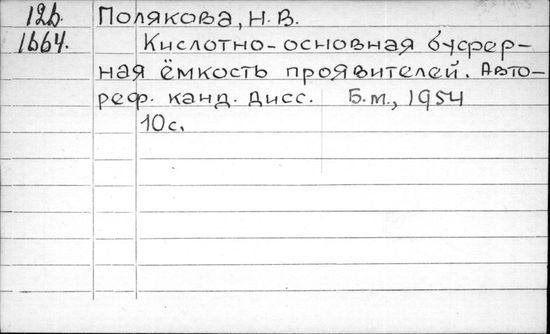 12б. Полякова, Н. В.
1664. Кислотно-основная буфер-
ная ёмкость проявителей. Авто-
реф. канд. дисс. Б.м., 1954
10с.